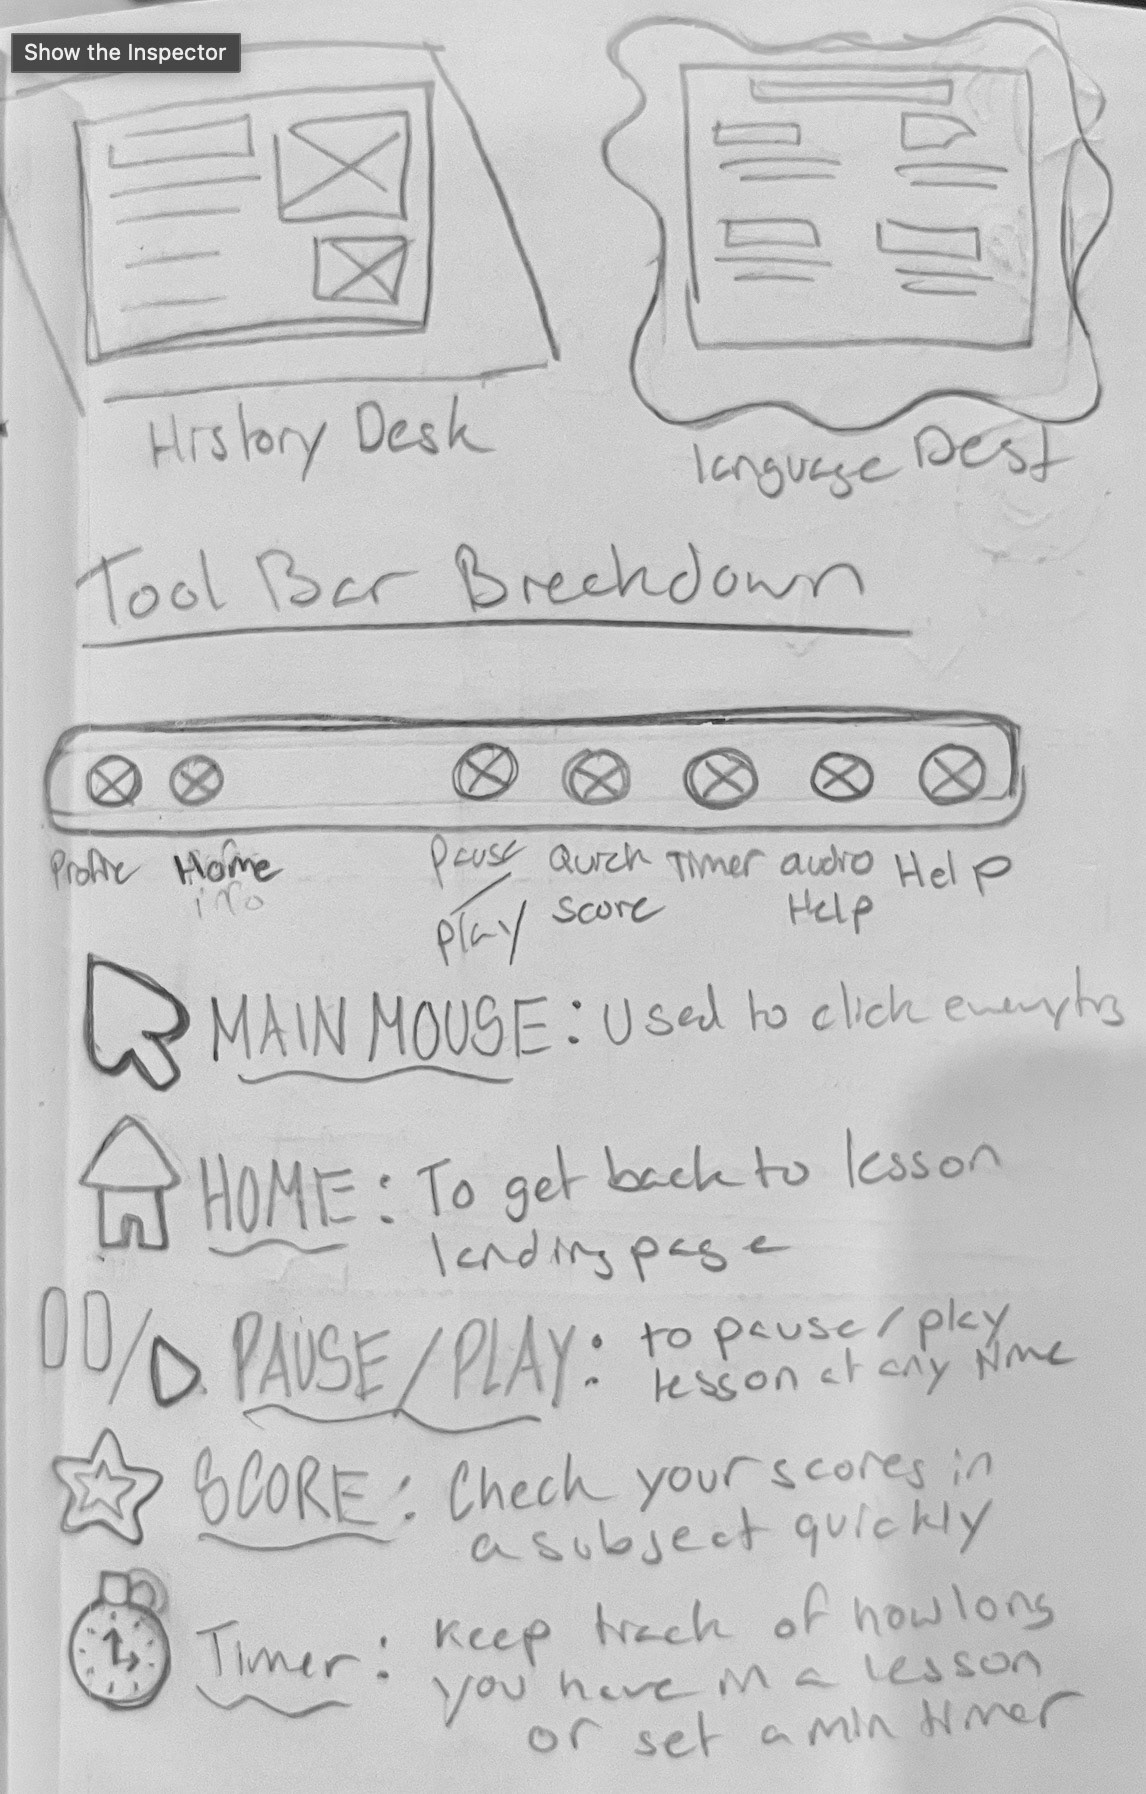 Show the Inspector
History Desk
language Desk
Tool Bar Breakdown
Profile
Home
info
Pause
/
play
Quick
Score
Timer
audio
Help
Help
MAIN MOUSE: Used to click
HOME: To get back to lesson
landing page
PAUSE/PLAY: to pause/play
lesson at any time
SCORE: Check your scores in
a subject quickly
Timer: Keep track of how long
you have in a lesson
or set a min timer